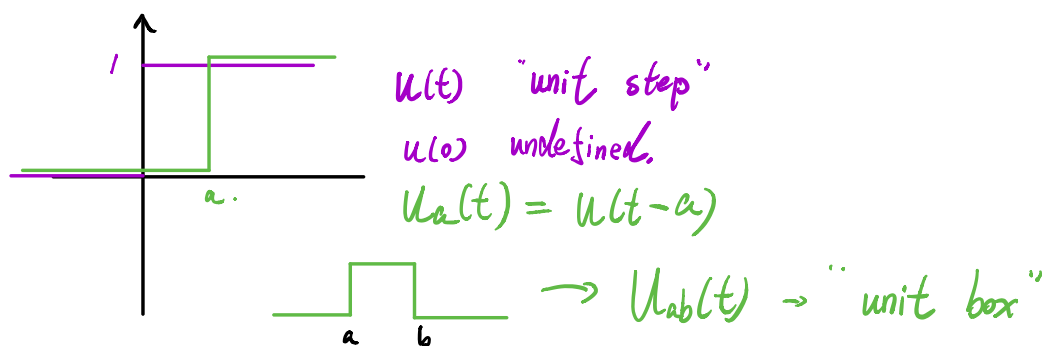 1
u(t) "unit step"
u(0) undefined.
a.
u_a(t) = u(t-a)
→ U_ab(t) → "unit box"
a b